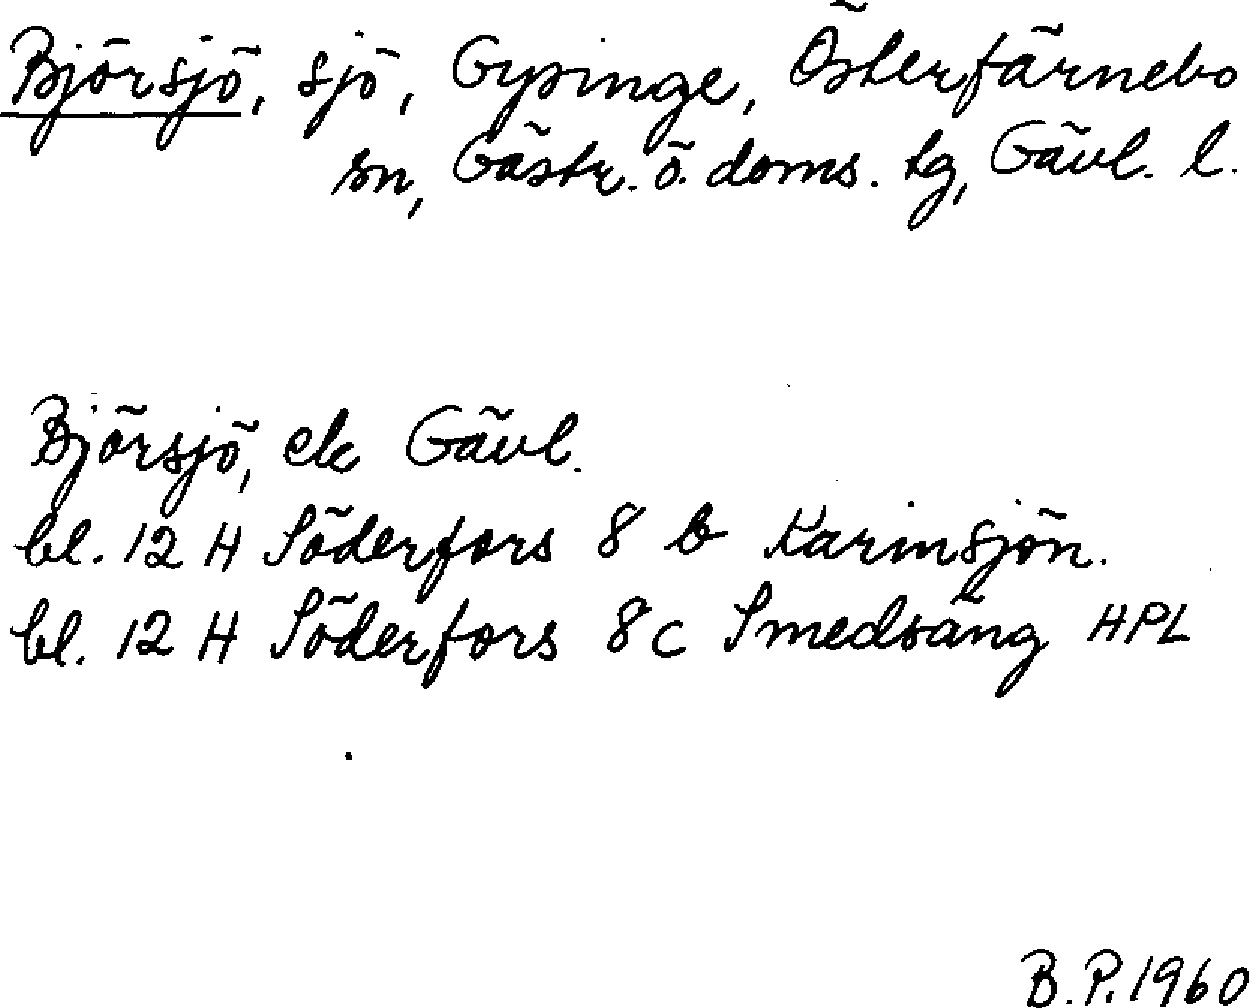 Björsjö, sjö, Gysinge, Österfärnebo
sn, Gästr. ö. doms. tg, Gävl. l.
Björsjö, ek Gävl.
bl. 12 H Söderfors 8 b Karinsjön.
bl. 12 H Söderfors 8 c Smedsäng HPL
B.P. 1960